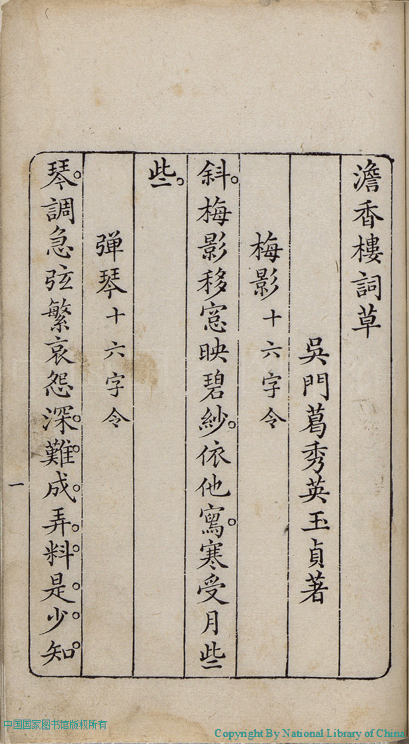 澹香樓詞草
吳門葛秀英玉貞著
梅影十六字令
斜。梅影移窓映碧紗。依他寫。寒受月些
些。
弹琴十六字令
琴。調急弦繁哀怨深。難。成。弄。料。是。少。知。
一
中国国家图书馆版权所有
Copyright By National Library of China